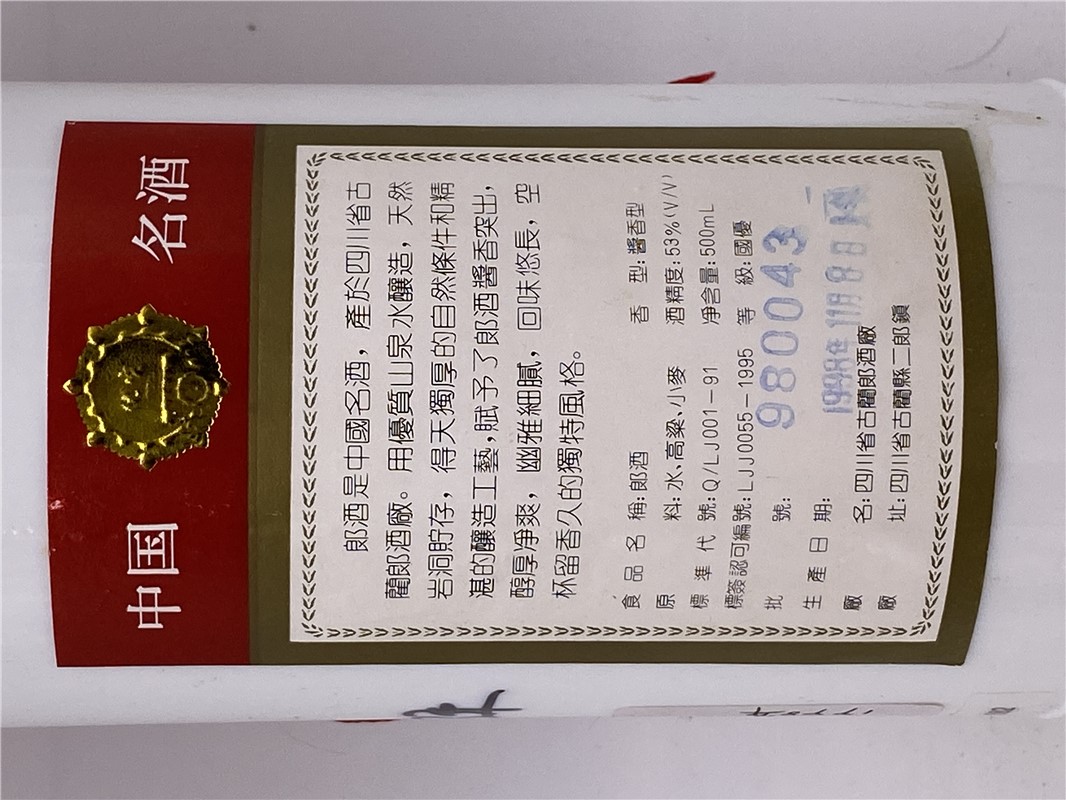 中国 名酒
郎酒是中國名酒，產於四川省古
藺郎酒廠。用優質山泉水釀造，天然
岩洞貯存，得天獨厚的自然條件和精
湛的釀造工藝，賦予了郎酒醬香突出，
醇厚凈爽，幽雅細膩，回味悠長，空
杯留香久的獨特風格。
食品名稱:郎酒 香型:醬香型
原料:水、高粱、小麥 酒精度:53%(V/V)
標準代號:Q/LJ001-91 净含量:500mL
標簽認可編號:LJJ0055-1995 等級:國優
批號: 980043
生產日期: 1998年11月8日
廠名:四川省古藺郎酒廠
廠址:四川省古藺縣二郎鎮